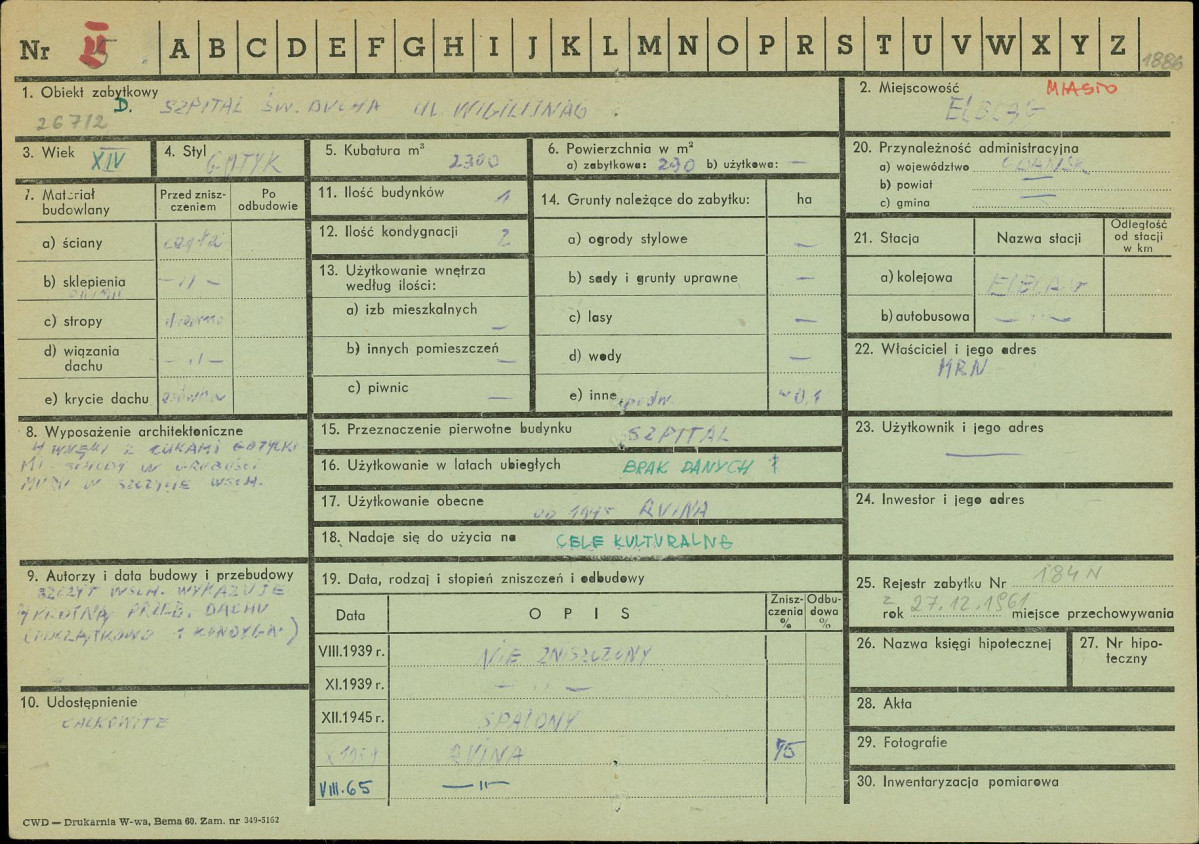 Nr II A B C D E F G H I J K L M N O P R S T U V W X Y Z 1886
1. Obiekt zabytkowy
D. SZPITAL ŚW. DUCHA UL WIGILIJNA
26712
2. Miejscowość MIASTO
ELBLĄG
3. Wiek XIV
4. Styl GOTYK
5. Kubatura m³ 2300
6. Powierzchnia w m²
a) zabytkowa: 290 b) użytkowa: —
20. Przynależność administracyjna
a) województwo GDAŃSK
b) powiat —
c) gmina —
7. Materiał budowlany
Przed znisz-
czeniem
Po
odbudowie
a) ściany cegła
b) sklepienia —„—
c) stropy
d) wiązania
dachu —„—
e) krycie dachu
11. Ilość budynków 1
12. Ilość kondygnacji 2
13. Użytkowanie wnętrza
według ilości:
a) izb mieszkalnych —
b) innych pomieszczeń —
c) piwnic —
14. Grunty należące do zabytku: ha
a) ogrody stylowe —
b) sady i grunty uprawne —
c) lasy —
d) wody —
e) inne podw. ~0,1
21. Stacja
Nazwa stacji
Odległość
od stacji
w km
a) kolejowa ELBLĄG
b) autobusowa —„—
22. Właściciel i jego adres
MRN
8. Wyposażenie architektoniczne
4 WNĘKI Z ŁUKAMI GOTYCKI-
MI. SCHODY W GRUBOŚCI
MURU W SZCZYCIE WSCH.
15. Przeznaczenie pierwotne budynku SZPITAL
16. Użytkowanie w latach ubiegłych BRAK DANYCH
17. Użytkowanie obecne OD 1945 RUINA
18. Nadaje się do użycia na CELE KULTURALNE
23. Użytkownik i jego adres
—
24. Inwestor i jego adres
9. Autorzy i data budowy i przebudowy
SZCZYT WSCH. WYKAZUJE
KROTNĄ PRZEB. DACHU
(POCZĄTKOWO 1 KONDYGN)
10. Udostępnienie
CAŁKOWITE
19. Data, rodzaj i stopień zniszczeń i odbudowy
Data
OPIS
Znisz-
czenia
%
Odbu-
dowa
%
VIII.1939 r. NIE ZNISZCZONY
XI.1939 r. —„—
XII.1945 r. SPALONY
X 1959 RUINA 75
VIII.65 —„—
25. Rejestr zabytku Nr 184 N
z
rok 27.12.1961 miejsce przechowywania
26. Nazwa księgi hipotecznej
27. Nr hipo-
teczny
28. Akta
29. Fotografie
30. Inwentaryzacja pomiarowa
CWD — Drukarnia W-wa, Bema 60. Zam. nr 349-5162